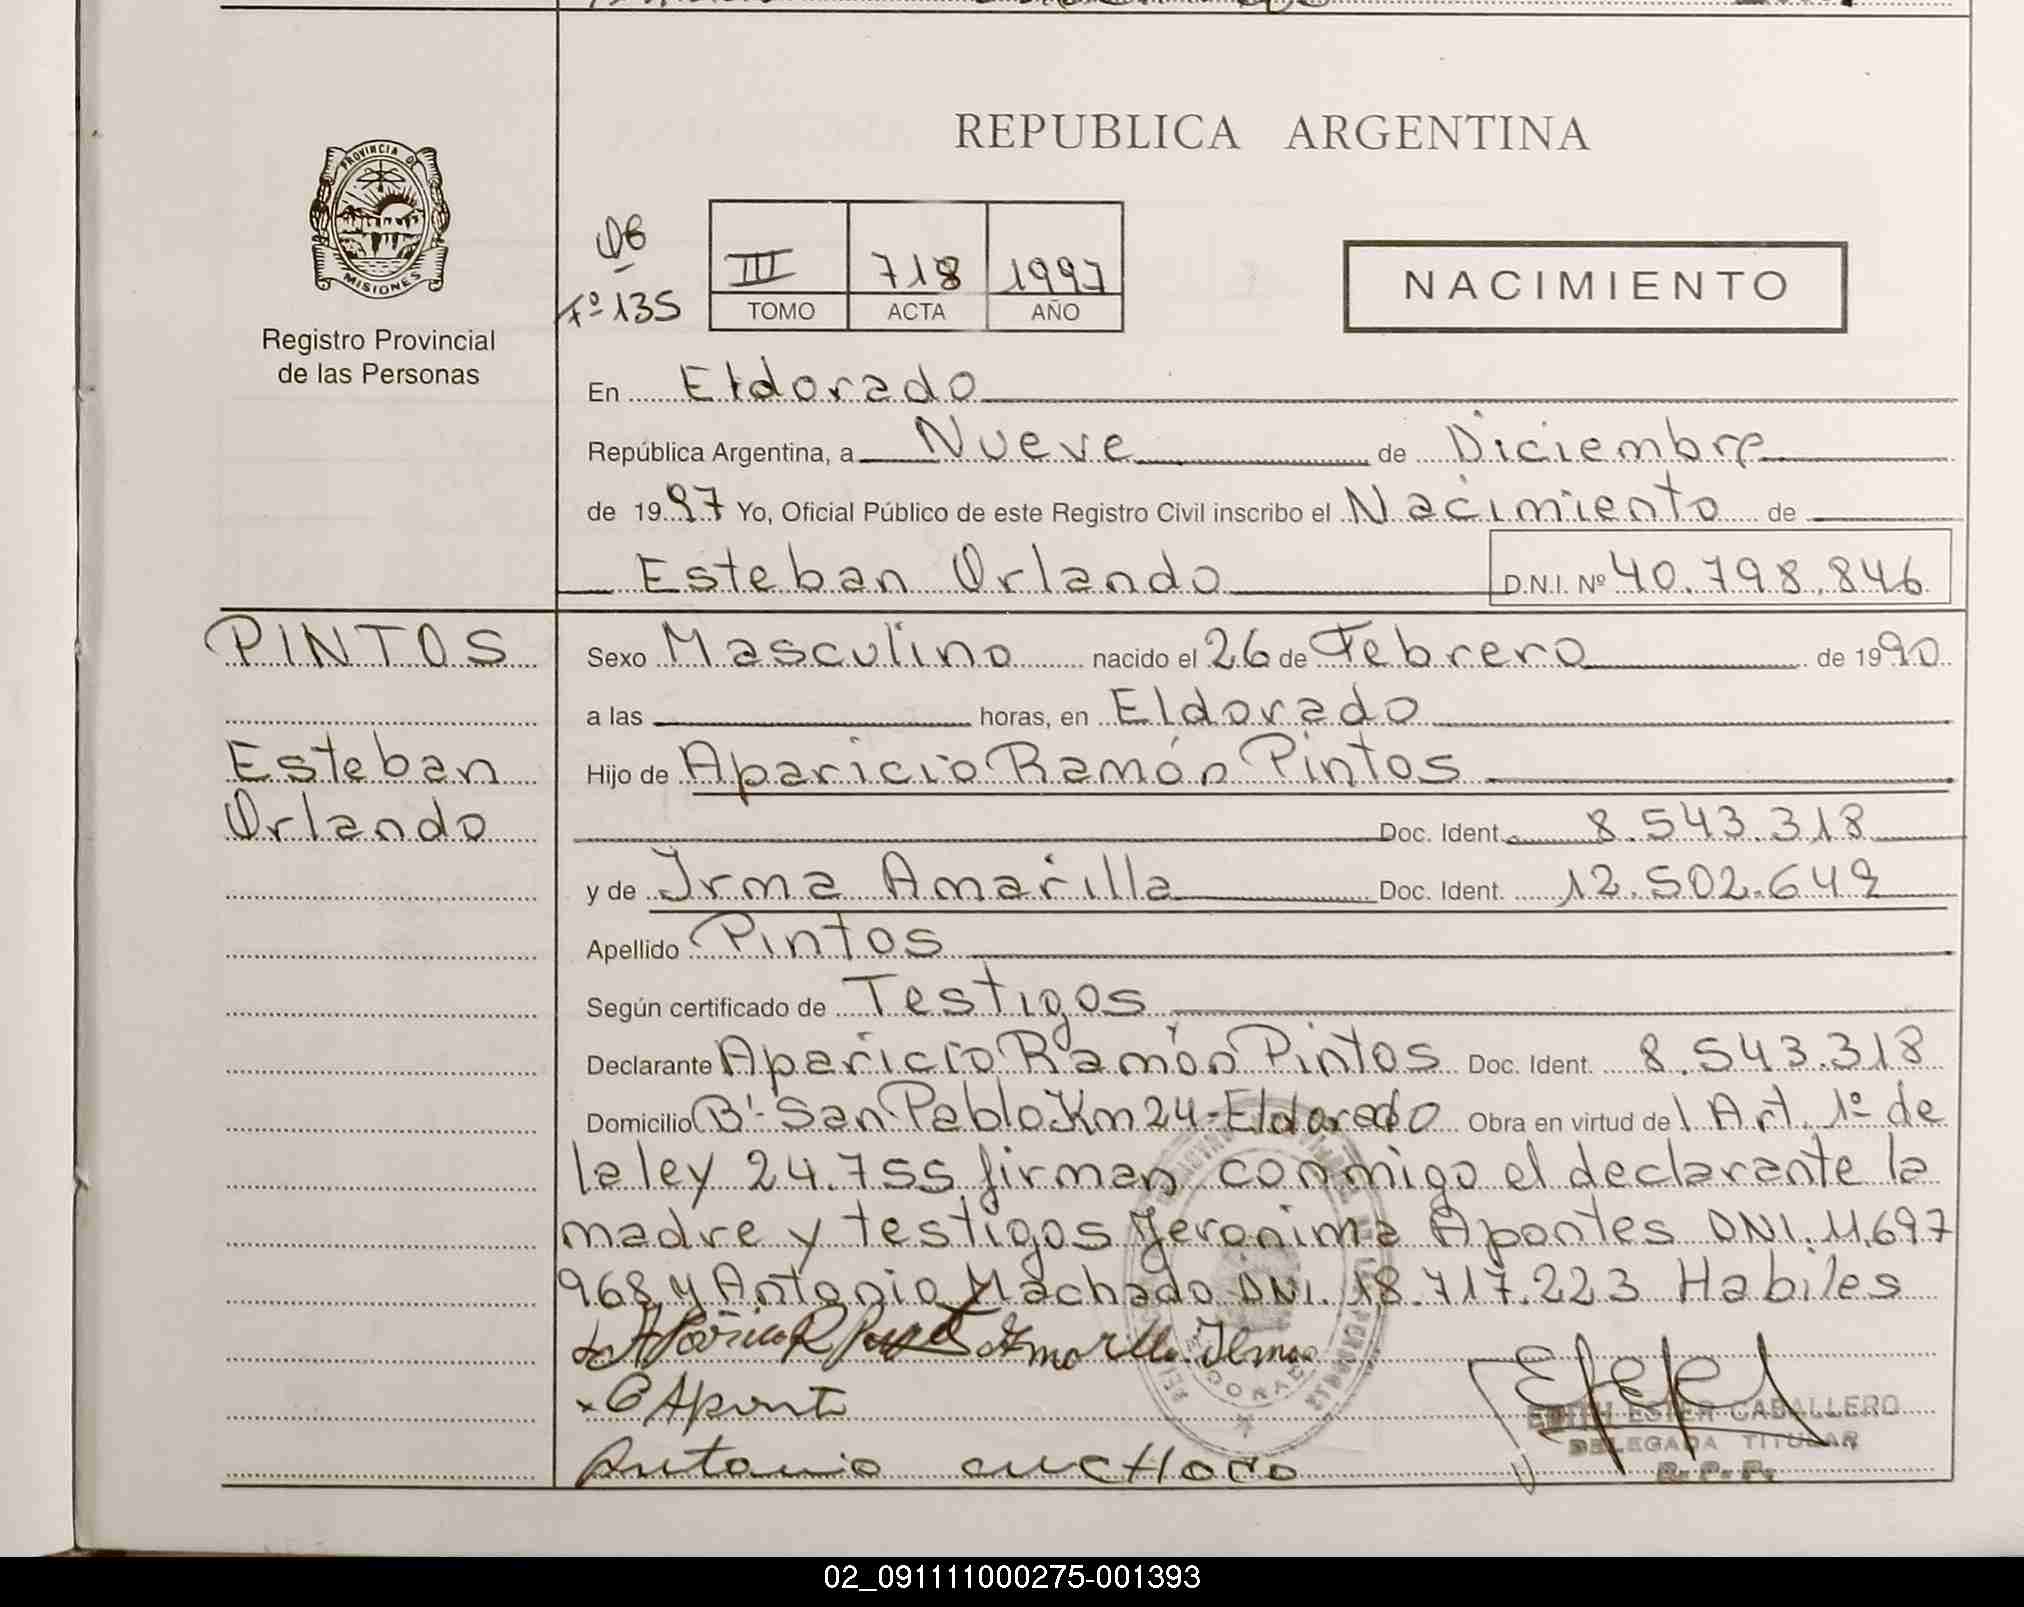 REPUBLICA ARGENTINA
PROVINCIA DE
MISIONES
Registro Provincial
de las Personas
Fº 135
III 718 1997
TOMO ACTA AÑO
NACIMIENTO
En Eldorado
República Argentina, a Nueve de Diciembre
de 1997 Yo, Oficial Público de este Registro Civil inscribo el Nacimiento de
Esteban Orlando D.N.I. Nº 40.798.846
PINTOS
Esteban
Orlando
Sexo Masculino nacido el 26 de Febrero de 1990
a las horas, en Eldorado
Hijo de Aparicio Ramón Pintos
Doc. Ident. 8.543.318
y de Irma Amarilla Doc. Ident. 12.502.649
Apellido Pintos
Según certificado de Testigos
Declarante Aparicio Ramón Pintos Doc. Ident. 8.543.318
Domicilio Bº San Pablo Km 24-Eldorado Obra en virtud del Art. 1º de
la ley 24.755 firman conmigo el declarante la
madre y testigos Jeronima Apontes DNI. 11.697
968 y Antonio Machado DNI. 18.717.223 Habiles
Amarilla Irma
Antonio
EDITH ESTER CABALLERO
DELEGADA TITULAR
R. P. P.
02_091111000275-001393